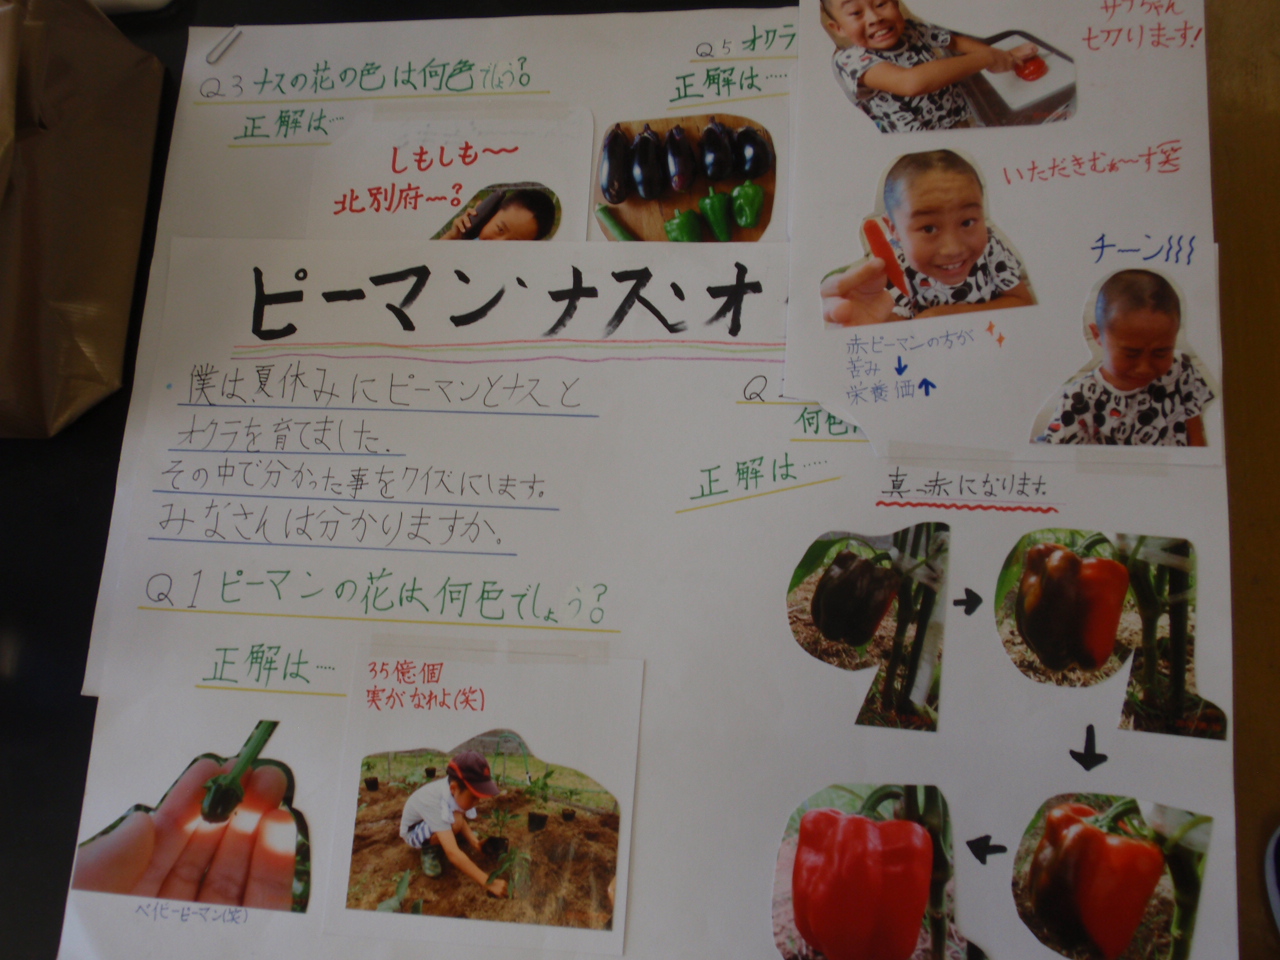 Q3 ナスの花の色は何色でしょう?
正解は……
しもしも〜〜
北別府〜〜?
Q5 オクラ
正解は……
切りまーす!
いただきむぁ〜〜す笑
チーン
赤ピーマンの方が
苦み↓
栄養価↑
ピーマン・ナス・オ
僕は夏休みにピーマンとナスと
オクラを育てました.
その中で分かった事をクイズにします。
みなさんは分かりますか。
Q1 ピーマンの花は何色でしょう?
正解は……
35億個
実がなれよ(笑)
ベイビーピーマン(笑)
Q
何色
正解は……
真っ赤になります